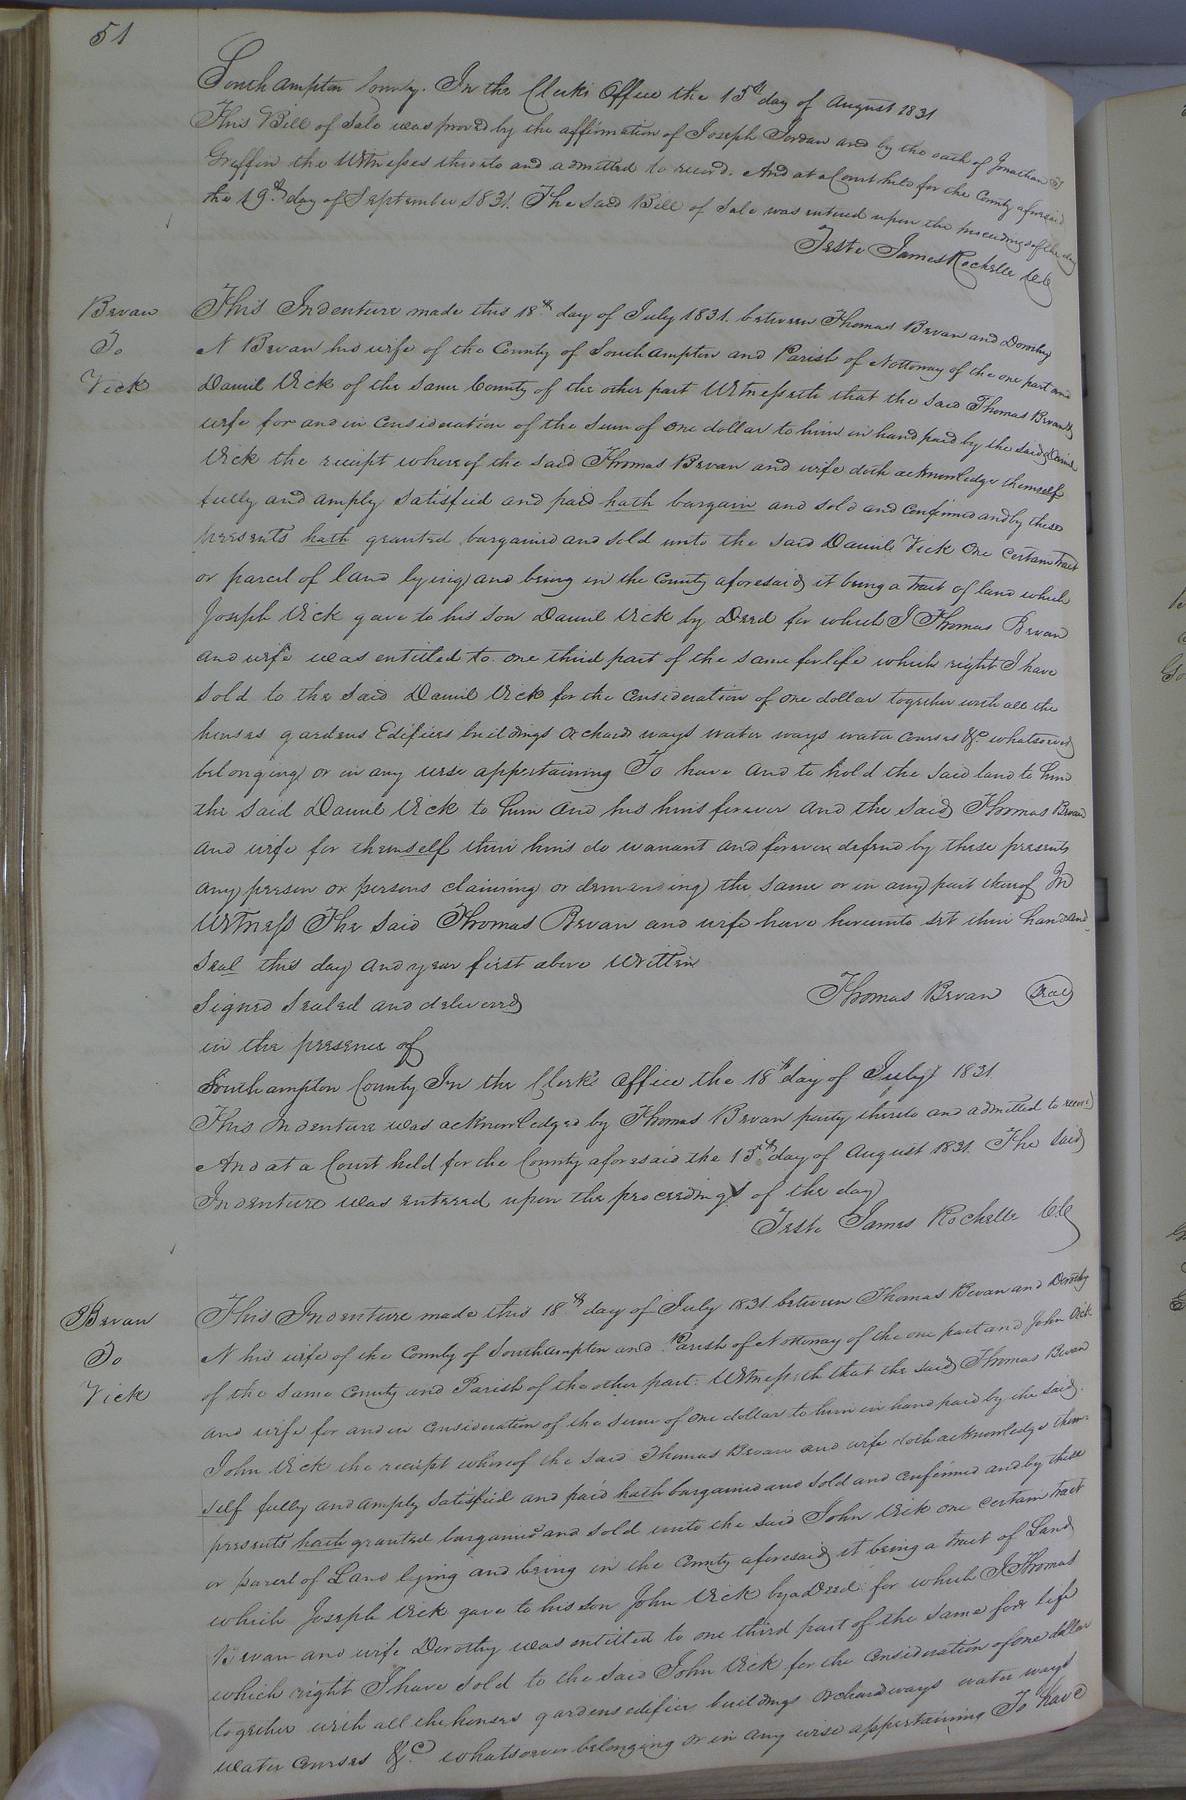 51
Southampton County. In the Clerks Office the 15th day of August 1831
This Bill of Sale was proved by the affirmation of Joseph Jordan and by the oath of Jonathan
Griffin the Witnesses thereto and admitted to record. And at a Court held for the County aforesaid
the 19th day of September 1831. The said Bill of Sale was entered upon the proceedings of the day
Teste James Rochelle CC
Bevan
To
Vick
This Indenture made this 18th day of July 1831. between Thomas Bevan and Dorothy
N Bevan his wife of the County of Southampton and Parish of Nottoway of the one part and
Daniel Vick of the same County of the other part Witnesseth that the said Thomas Bevan &
wife for and in Consideration of the sum of one dollar to him in hand paid by the said Daniel
Vick the receipt whereof the said Thomas Bevan and wife doth acknowledge themself
fully and amply satisfied and paid hath bargain and sold and Confirmed and by these
presents hath granted bargained and sold unto the said Daniel Vick One Certain Tract
or parcel of land lying and being in the County aforesaid it being a tract of land which
Joseph Vick gave to his son Daniel Vick by Deed for which I Thomas Bevan
and wife was entitled to one third part of the same for life which right I have
Sold to the said Daniel Vick for the Consideration of one dollar together with all the
houses gardens Edifices buildings orchard ways water ways water courses &c whatsoever
belonging or in any wise appertaining To have and to hold the said land to him
the said Daniel Vick to him and his heirs forever and the said Thomas Bevan
and wife for themself their heirs do warrant and forever defend by these presents
any person or persons claiming or demending the same or in any part thereof In
Witness The said Thomas Bevan and wife have hereunto set their hand and
Seal this day and year first above Written
Signed Sealed and delivered Thomas Bevan Seal
in the presence of
Southampton County In the Clerk's Office the 18th day of July 1831.
This Indenture was acknowledged by Thomas Bevan party thereto and admitted to record
And at a Court held for the County aforesaid the 15th day of August 1831. The said
Indenture was entered upon the proceedings of the day
Teste James Rochelle CC
Bevan
To
Vick
This Indenture made this 18th day of July 1831 between Thomas Bevan and Dorothy
N his wife of the County of Southampton and Parish of Nottoway of the one part and John Vick
of the same County and Parish of the other part. Witnesseth that the said Thomas Bevan
and wife for and in Consideration of the sum of one dollar to him in hand paid by the said
John Vick the receipt whereof the said Thomas Bevan and wife doth acknowledge them-
self fully and amply satisfied and paid hath bargained and sold and Confirmed and by these
presents hath granted bargained and sold unto the said John Vick one certain tract
or parcel of Land lying and being in the County aforesaid it being a tract of Land
which Joseph Vick gave to his son John Vick by a Deed for which I Thomas
Bevan and wife Dorothy was entitled to one third part of the same for life
which right I have sold to the said John Vick for the Consideration of one dollar
together with all the houses gardens edifice buildings Orchard ways water ways
water courses &c whatsoever belonging or in any wise appertaining To have